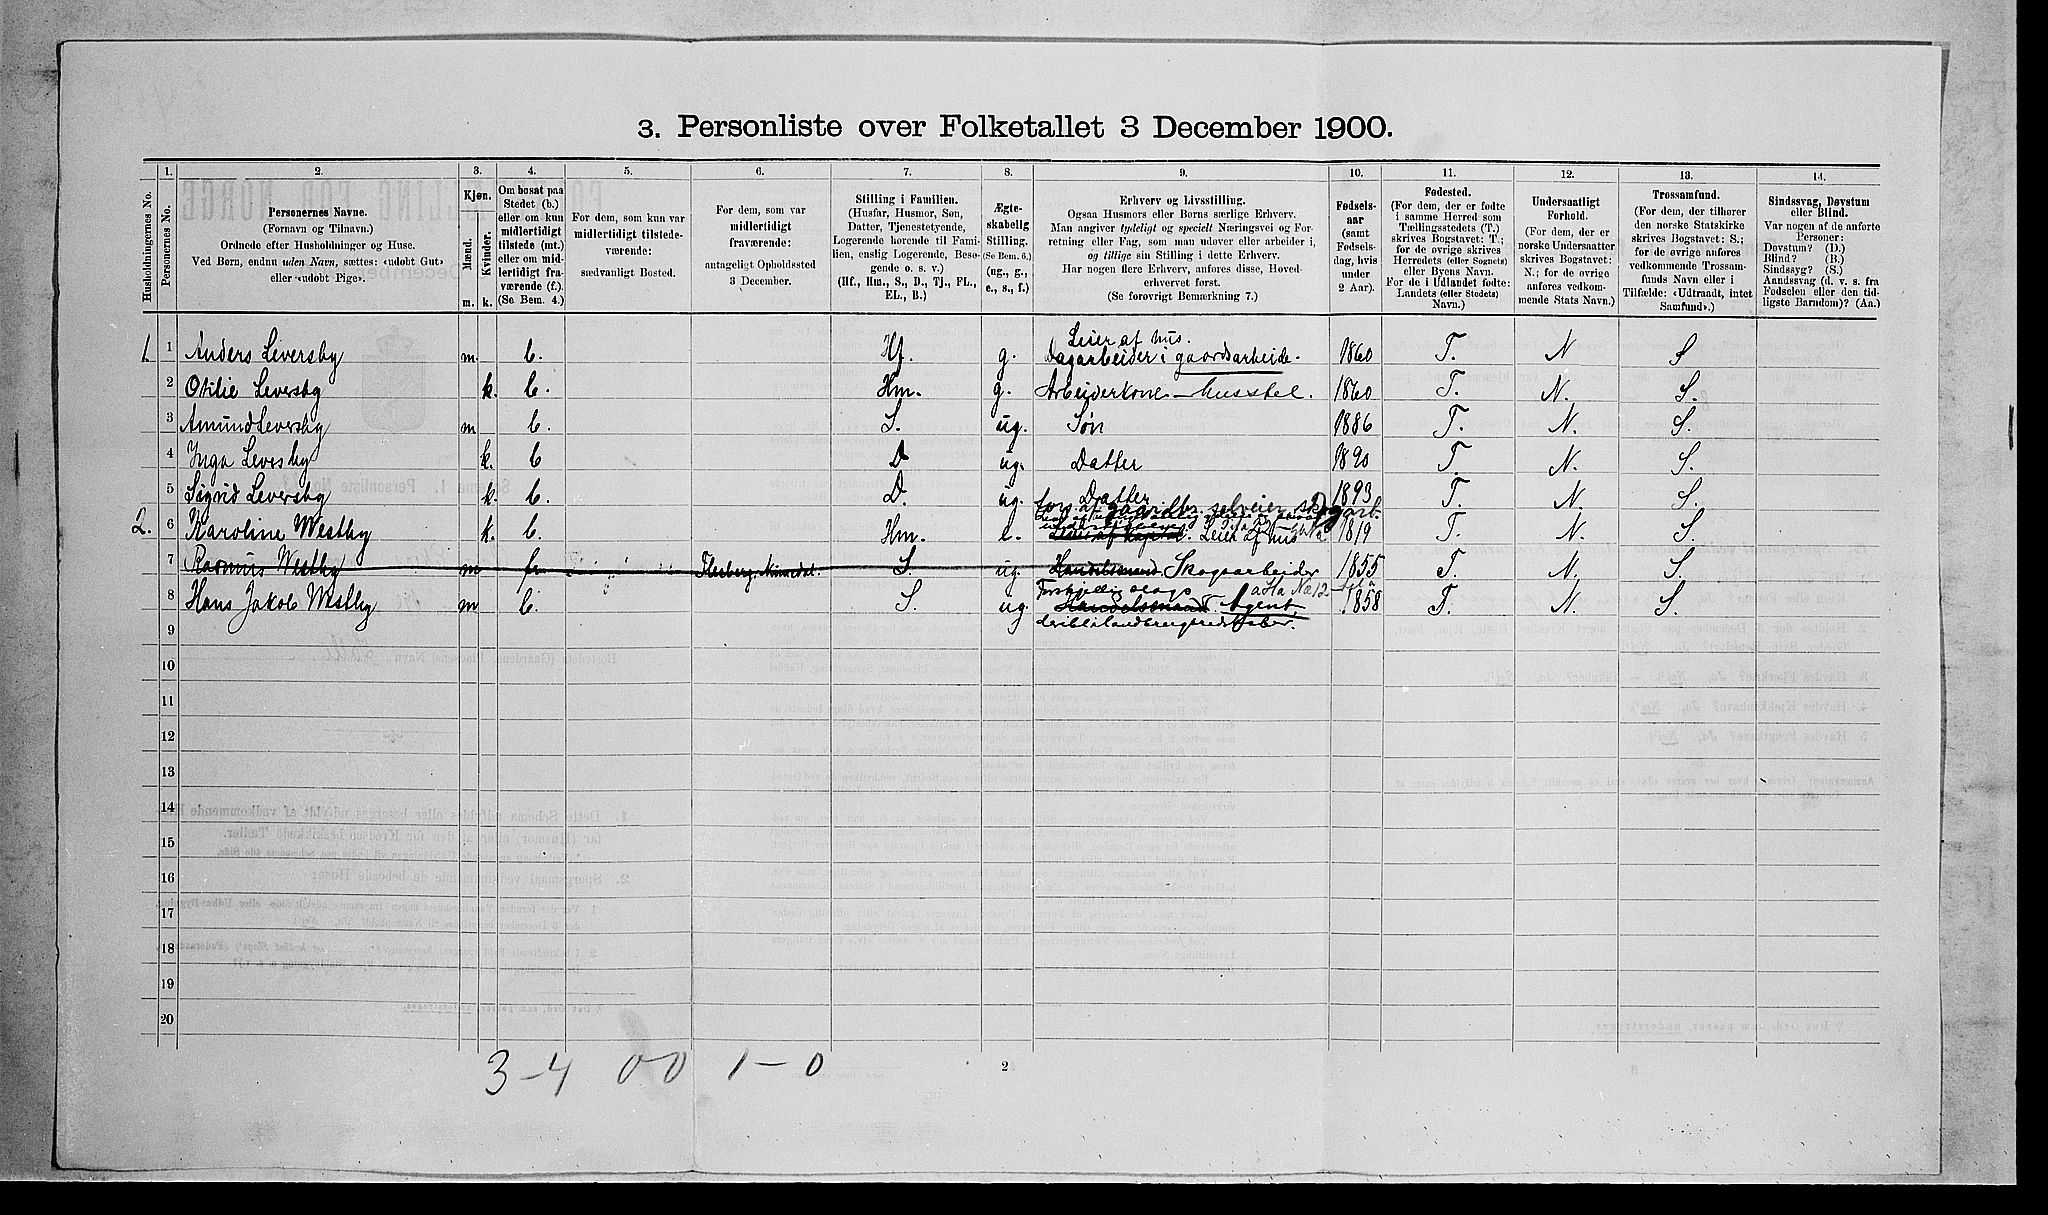 3. Personliste over Folketallet 3 December 1900.
1. 2. 3. 4. 5. 6. 7. 8. 9. 10. 11. 12. 13. 14.
Husholdningernes No.
Personernes No.
Personernes Navne.
(Fornavn og Tilnavn.)
Ordnede efter Husholdninger og Huse.
Ved Børn, endnu uden Navn, sættes: «udobt Gut»
eller «udobt Pige».
Kjøn.
Mænd. Kvinder.
m. k.
Om bosat paa
Stedet (b.)
eller om kun
midlertidigt
tilstede (mt.)
eller om mid-
lertidigt fra-
værende (f.).
(Se Bem. 4.)
For dem, som kun var
midlertidigt tilstede-
værende:
sædvanligt Bosted.
For dem, som var
midlertidigt
fraværende:
antageligt Opholdssted
3 December.
Stilling i Familien.
(Husfar, Husmor, Søn,
Datter, Tjenestetyende,
Logerende hørende til Fami-
lien, enslig Logerende, Beso-
gende o. s. v.)
(Hf., Hm., S., D., Tj., FL.,
EL., B.)
Ægte-
skabelig
Stilling.
(Se Bem. 6.)
(ug., g.,
e., s., f.)
Erhverv og Livsstilling.
Ogsaa Husmors eller Børns særlige Erhverv.
Man angiver tydeligt og specielt Næringsvei og For-
retning eller Fag, som man udøver eller arbeider i,
og tillige sin Stilling i dette Erhverv.
Har nogen flere Erhverv, anføres disse, Hoved-
erhvervet først.
(Se forøvrigt Bemærkning 7.)
Fødsels-
aar
(samt
Fødsels-
dag, hvis
under
2 Aar).
Fødested.
(For dem, der er fødte
i samme Herred som
Tællingsstedets (T.)
skrives Bogstavet: T.;
for de øvrige skrives
Herredets (eller Sognets)
eller Byens Navn.
For de i Udlandet fødte:
Landets (eller Stedets)
Navn.)
Undersaatligt
Forhold.
(For dem, der er
norske Undersaatter
skrives Bogstavet:
N.; for de øvrige
anføres vedkom-
mende Stats Navn.)
Trossamfund.
(For dem, der tilhører
den norske Statskirke
skrives Bogstavet: S.;
for de øvrige anføres
vedkommende Trossam-
funds Navn eller i
Tilfælde: «Udtraadt, intet
Samfund».)
Sindssvag, Døvstum
eller Blind.
Var nogen af de anførte
Personer:
Døvstum? (D.)
Blind? (B.)
Sindssyg? (S.)
Aandssvag (d. v. s. fra
Fødselen eller den tid-
ligste Barndom)? (Aa.)
Leier af hus.
1. 1 Anders Leversby m. b. Hf. g. Dagarbeider i gaardsarbeide. 1860 T. N S
2 Otilie Leversby k. b. Hm. g. Arbeiderkone - husstel. 1860 T. N. S.
3 Amund Leversby m b. S. ug. Søn 1886 T. N. S.
4 Inga Levesby k. b D ug. Datter 1890 T. N. S.
5 Sigrid Leversby k. b. D. ug. Datter 1893 T. N. S.
2. 6 Karoline Westby k. b. Hm. e. Leier af kapital. Leier af hus 1819 T. N. S.
7 Rasmus Westby m fr. Flesberg, Numedal. S. ug. Handelsmand Skogsarbeider 1855 T. N. S.
Forskjellig slags
8 Hans Jakob Westby m b. S. ug. Handelsmand Agent. 1858 T. N. S.
9
10
11
12
13
14
15
16
17
18
19
20
3-4 00 1-0
2